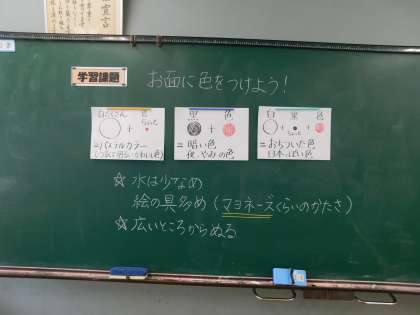 宣言
学習課題
お面に色をつけよう!
白たくさん 色 ちょっと
=パステルカラー
黒 色
=暗い色
夜、やみの色
白 黒 色
ちょっと
=おちついた色
日本っぽい色
☆水は少なめ
絵の具多め(マヨネーズくらいのかたさ)
☆広いところからぬる